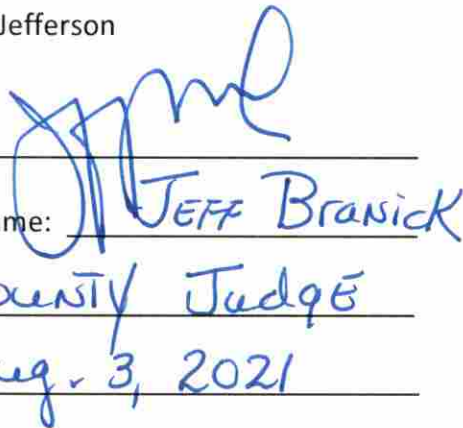 Jefferson
ame: JEFF BRANICK
OUNTY JudgE
ug. 3, 2021